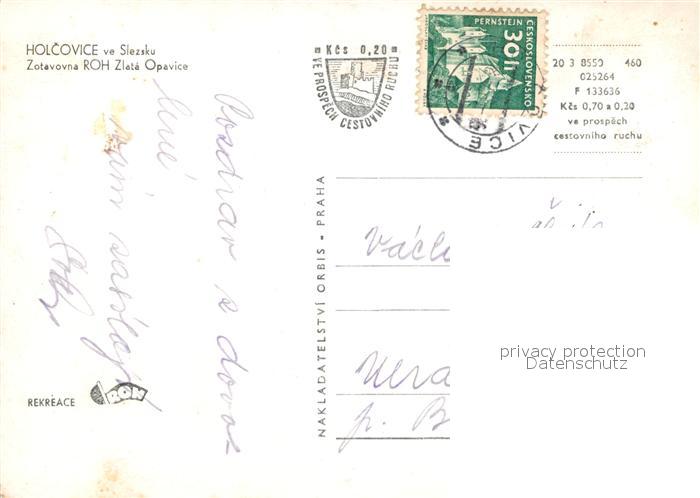 HOLČOVICE ve Slezsku
Zotavovna ROH Zlatá Opavice
Kčs 0,20
VE PROSPĚCH CESTOVNÍHO RUCHU
PERNSTEJN
30h
ČESKOSLOVENSKO
VICE
20 3 8550 460
025264
F 133636
Kčs 0,70 a 0,20
ve prospěch
cestovního ruchu
Pozdrav z dovo-
lené
vám zasílají
NAKLADATELSTVÍ ORBIS - PRAHA
Václ
p. B
privacy protection
Datenschutz
REKREACE
ROH